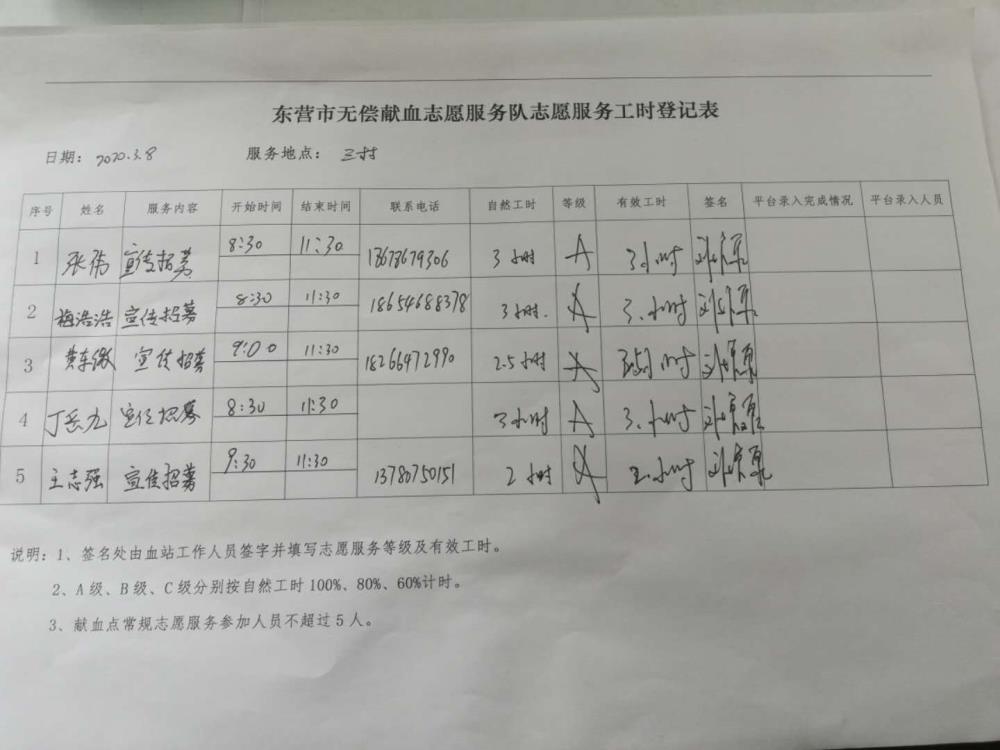 东营市无偿献血志愿服务队志愿服务工时登记表
日期：2020.3.8 服务地点：三村
序号 姓名 服务内容 开始时间 结束时间 联系电话 自然工时 等级 有效工时 签名 平台录入完成情况 平台录入人员
1 张伟 宣传招募 8:30 11:30 18678679306 3小时 A 3小时
2 梅浩浩 宣传招募 8:30 11:30 18654688378 3小时. A 3.小时
3 宣传招募 9:00 11:30 18266472990 2.5小时 A 小时
4 宣传招募 8:30 11:30 3小时 A 3.小时
5 王志强 宣传招募 9:30 11:30 13780750151 2小时 A 2.小时
说明：1、签名处由血站工作人员签字并填写志愿服务等级及有效工时。
2、A级、B级、C级分别按自然工时100%、80%、60%计时。
3、献血点常规志愿服务参加人员不超过5人。